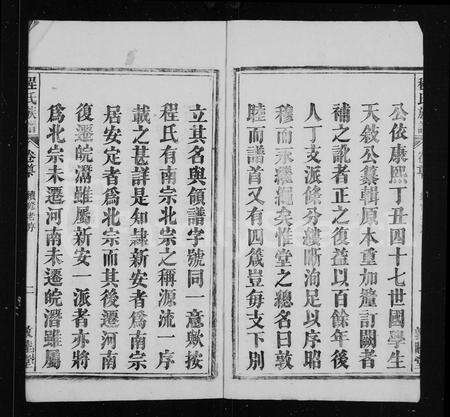 公依康熙丁丑四十七世國學生
天敘公纂輯原本重加釐訂闕者
補之訛者正之復益以百餘年後
人丁支派條分縷晰洵足以序昭
穆而永繩繩矣惟堂之總名曰敦
睦而譜首又有四箴豈每支下別
立其名與領譜字號同一意歟按
程氏有南宗北宗之稱源流一序
載之甚詳是知隸新安者爲南宗
居安定者爲北宗而其後遷河南
復遷皖潛雖屬新安一派者亦將
爲北宗未遷河南未遷皖潛雖屬
程氏族譜
卷首